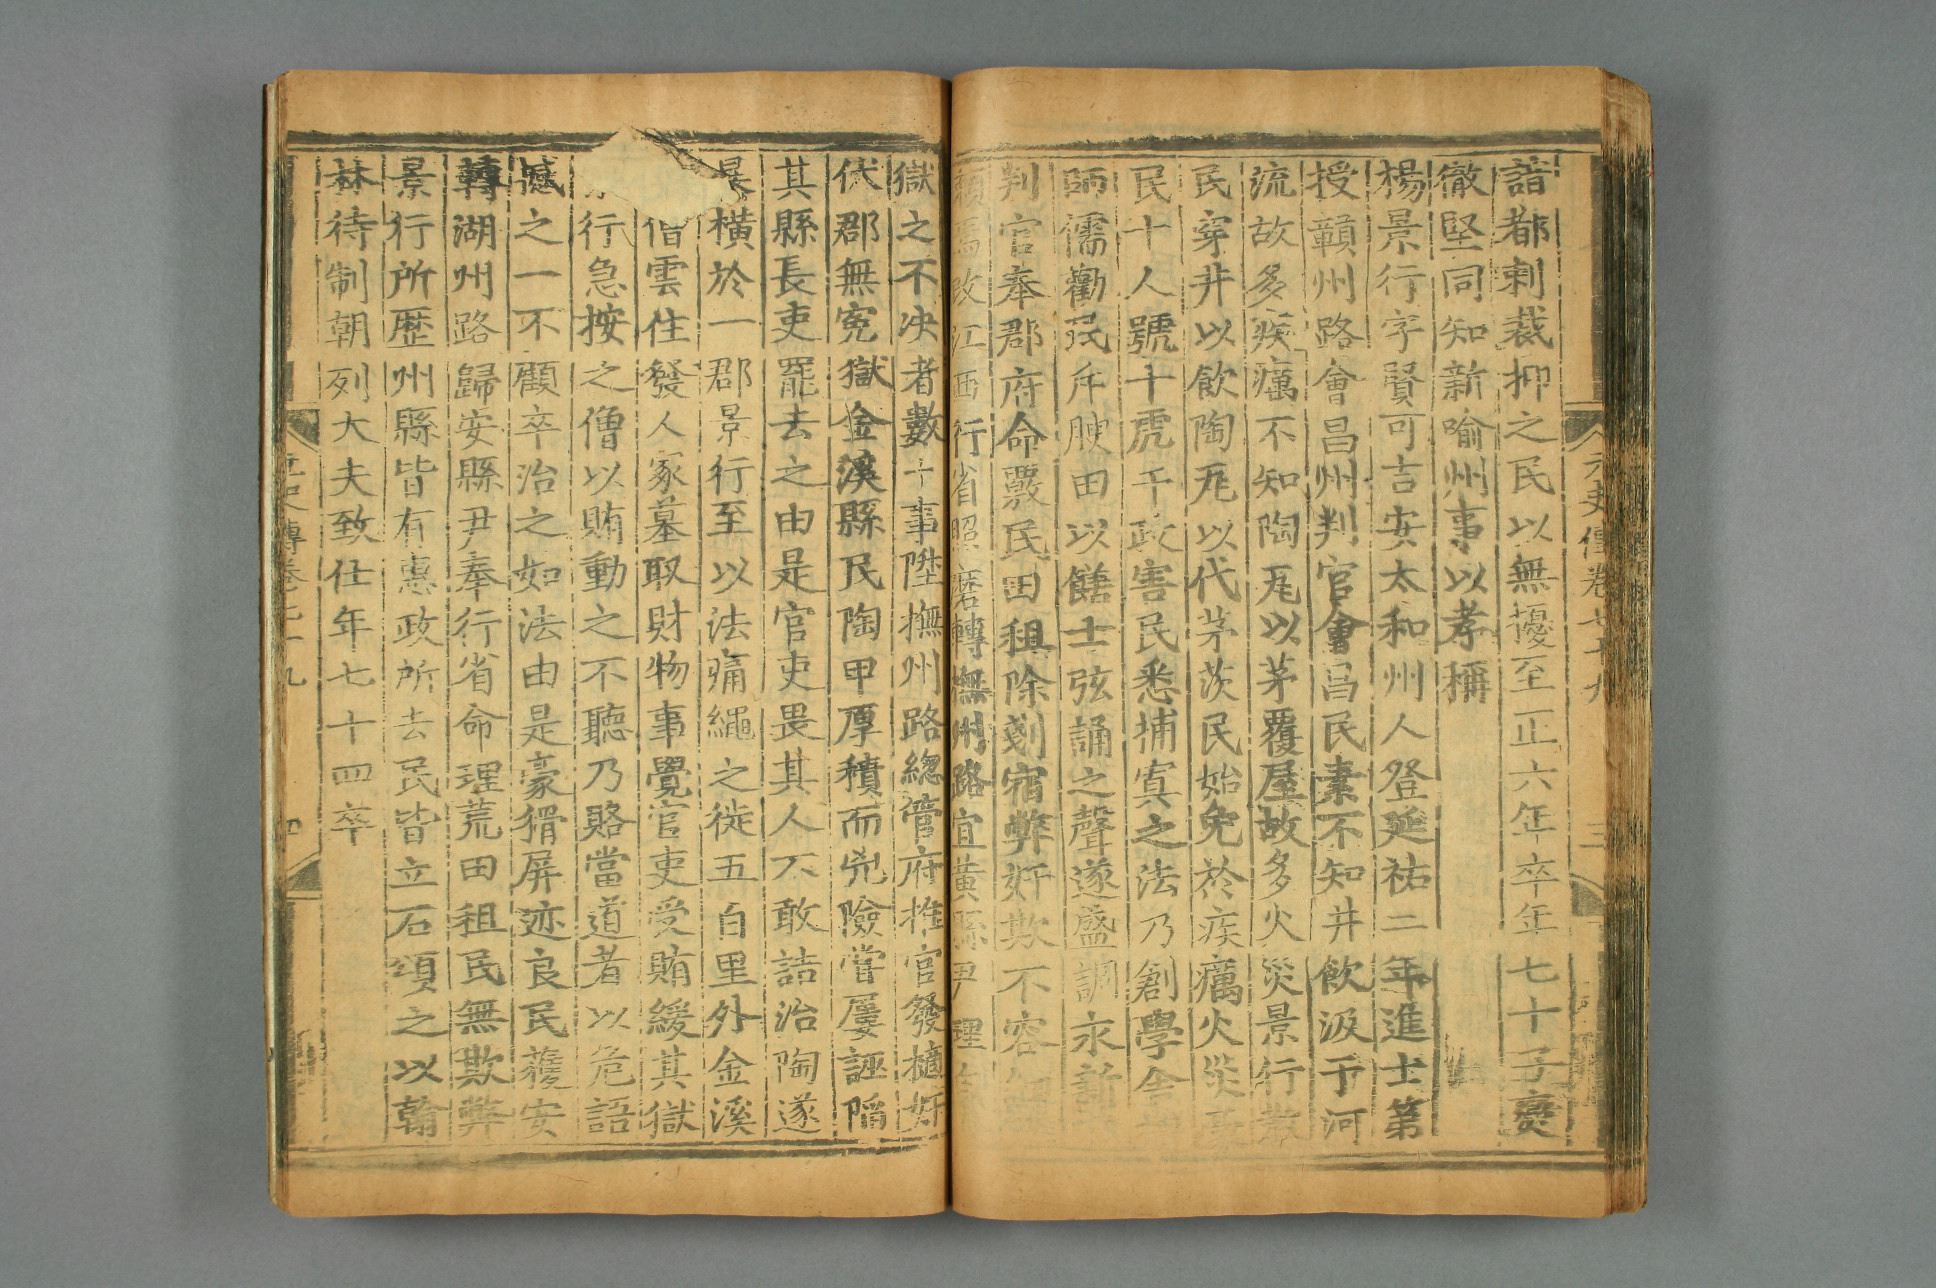 詣都剌裁抑之民以無擾至正六年卒年七十子燮
徹堅同知新喻州事以孝稱
楊景行字賢可吉安太和州人登延祐二年進士第
授贛州路會昌州判官會昌民素不知井飲汲于河
流故多疾癘不知陶瓦以茅覆屋故多火災景行教
民穿井以飲陶瓦以代茅茨民始免於疾癘火災豪
民十人號十虎干政害民悉捕寘之法乃創學舍
師儒勸民斥腴田以饍士弦誦之聲遂盛調永新
判官奉郡府命覈民田租除剗宿弊奸欺不容
焉改江西行省照磨轉撫州路宜黃縣尹理
獄之不決者數十事陞撫州路緫管府推官發擿奸
伏郡無冤獄金溪縣民陶甲厚積而兇險嘗屢誣陷
其縣長吏罷去之由是官吏畏其人不敢詰治陶遂
暴橫於一郡景行至以法痛繩之徙五百里外金溪
僧雲住發人冢墓取財物事覺官吏受賄緩其獄
行急按之僧以賄動之不聽乃賂當道者以危語
撼之一不顧卒治之如法由是豪猾屏迹良民獲安
轉湖州路歸安縣尹奉行省命理荒田租民無欺弊
景行所歷州縣皆有惠政所去民皆立石頌之以翰
林待制朝列大夫致仕年七十四卒
元史傳卷七十九
三
元史傳卷七十九
四